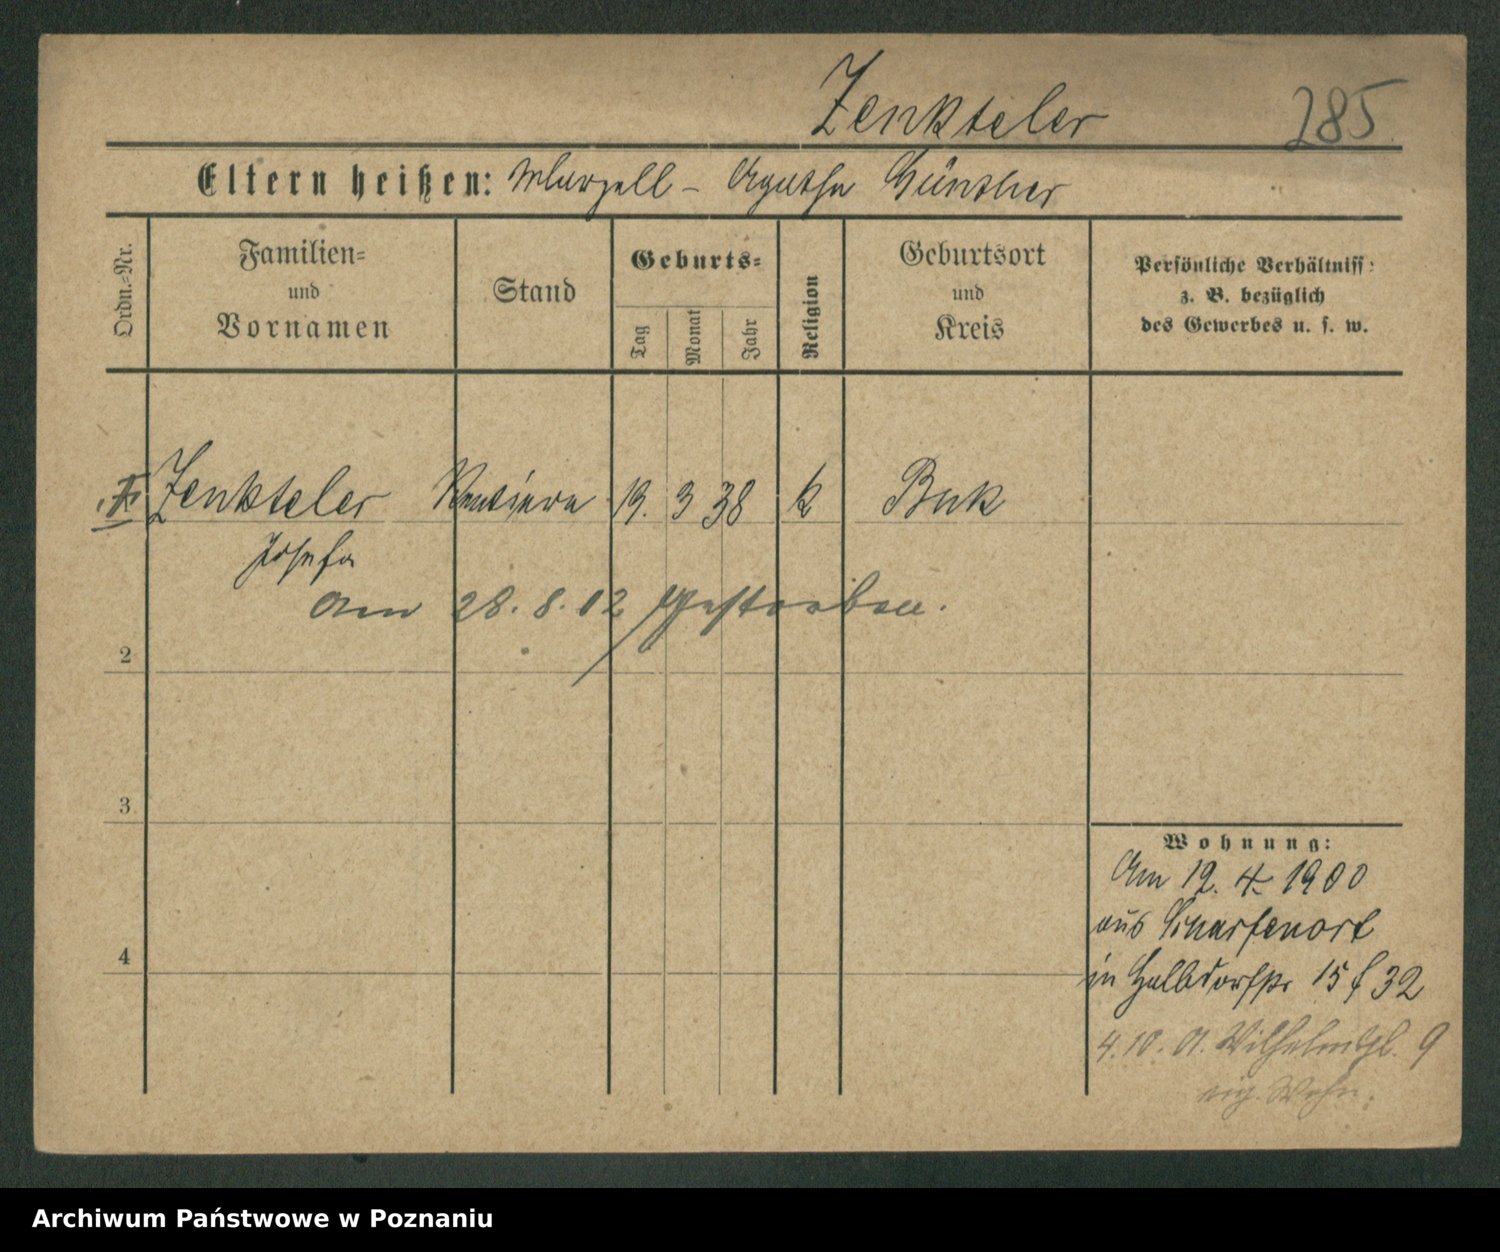 Zenkteler 285
Eltern heißen: Marzell – Agatha Günther
Ordn.-Nr.
Familien=
und
Vornamen
Stand
Geburts=
Tag
Monat
Jahr
Religion
Geburtsort
und
Kreis
Persönliche Verhältniss:
z. B. bezüglich
des Gewerbes u. s. w.
Zenkteler Rentiere 19. 3 38 k Buk
Josefa
am 28. 8. 02 gestorben.
2
3
4
Wohnung:
Am 12. 4. 1900
aus Scharfenort
in Halbdorfstr 15 32
4. 10. 01. Wilhelmspl. 9
eig. Wohn.
Archiwum Państwowe w Poznaniu